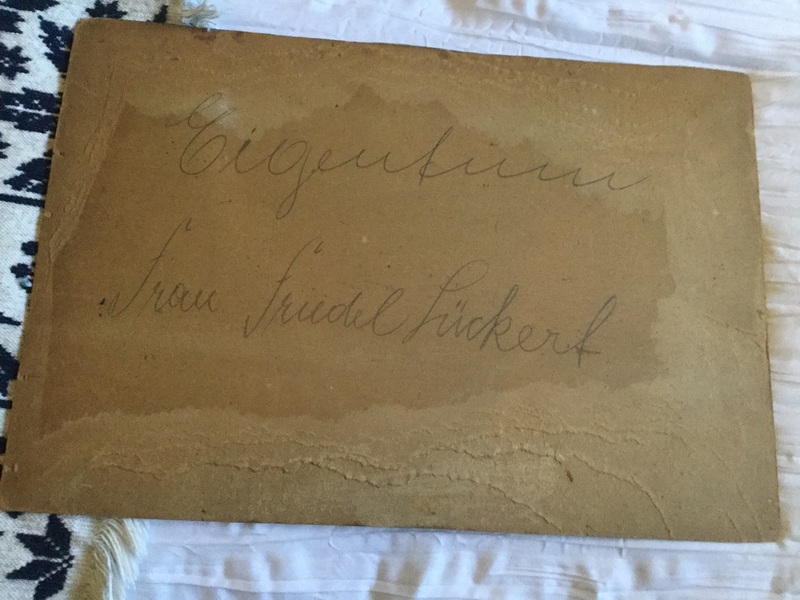 Eigentum
Frau Friedel Lückert